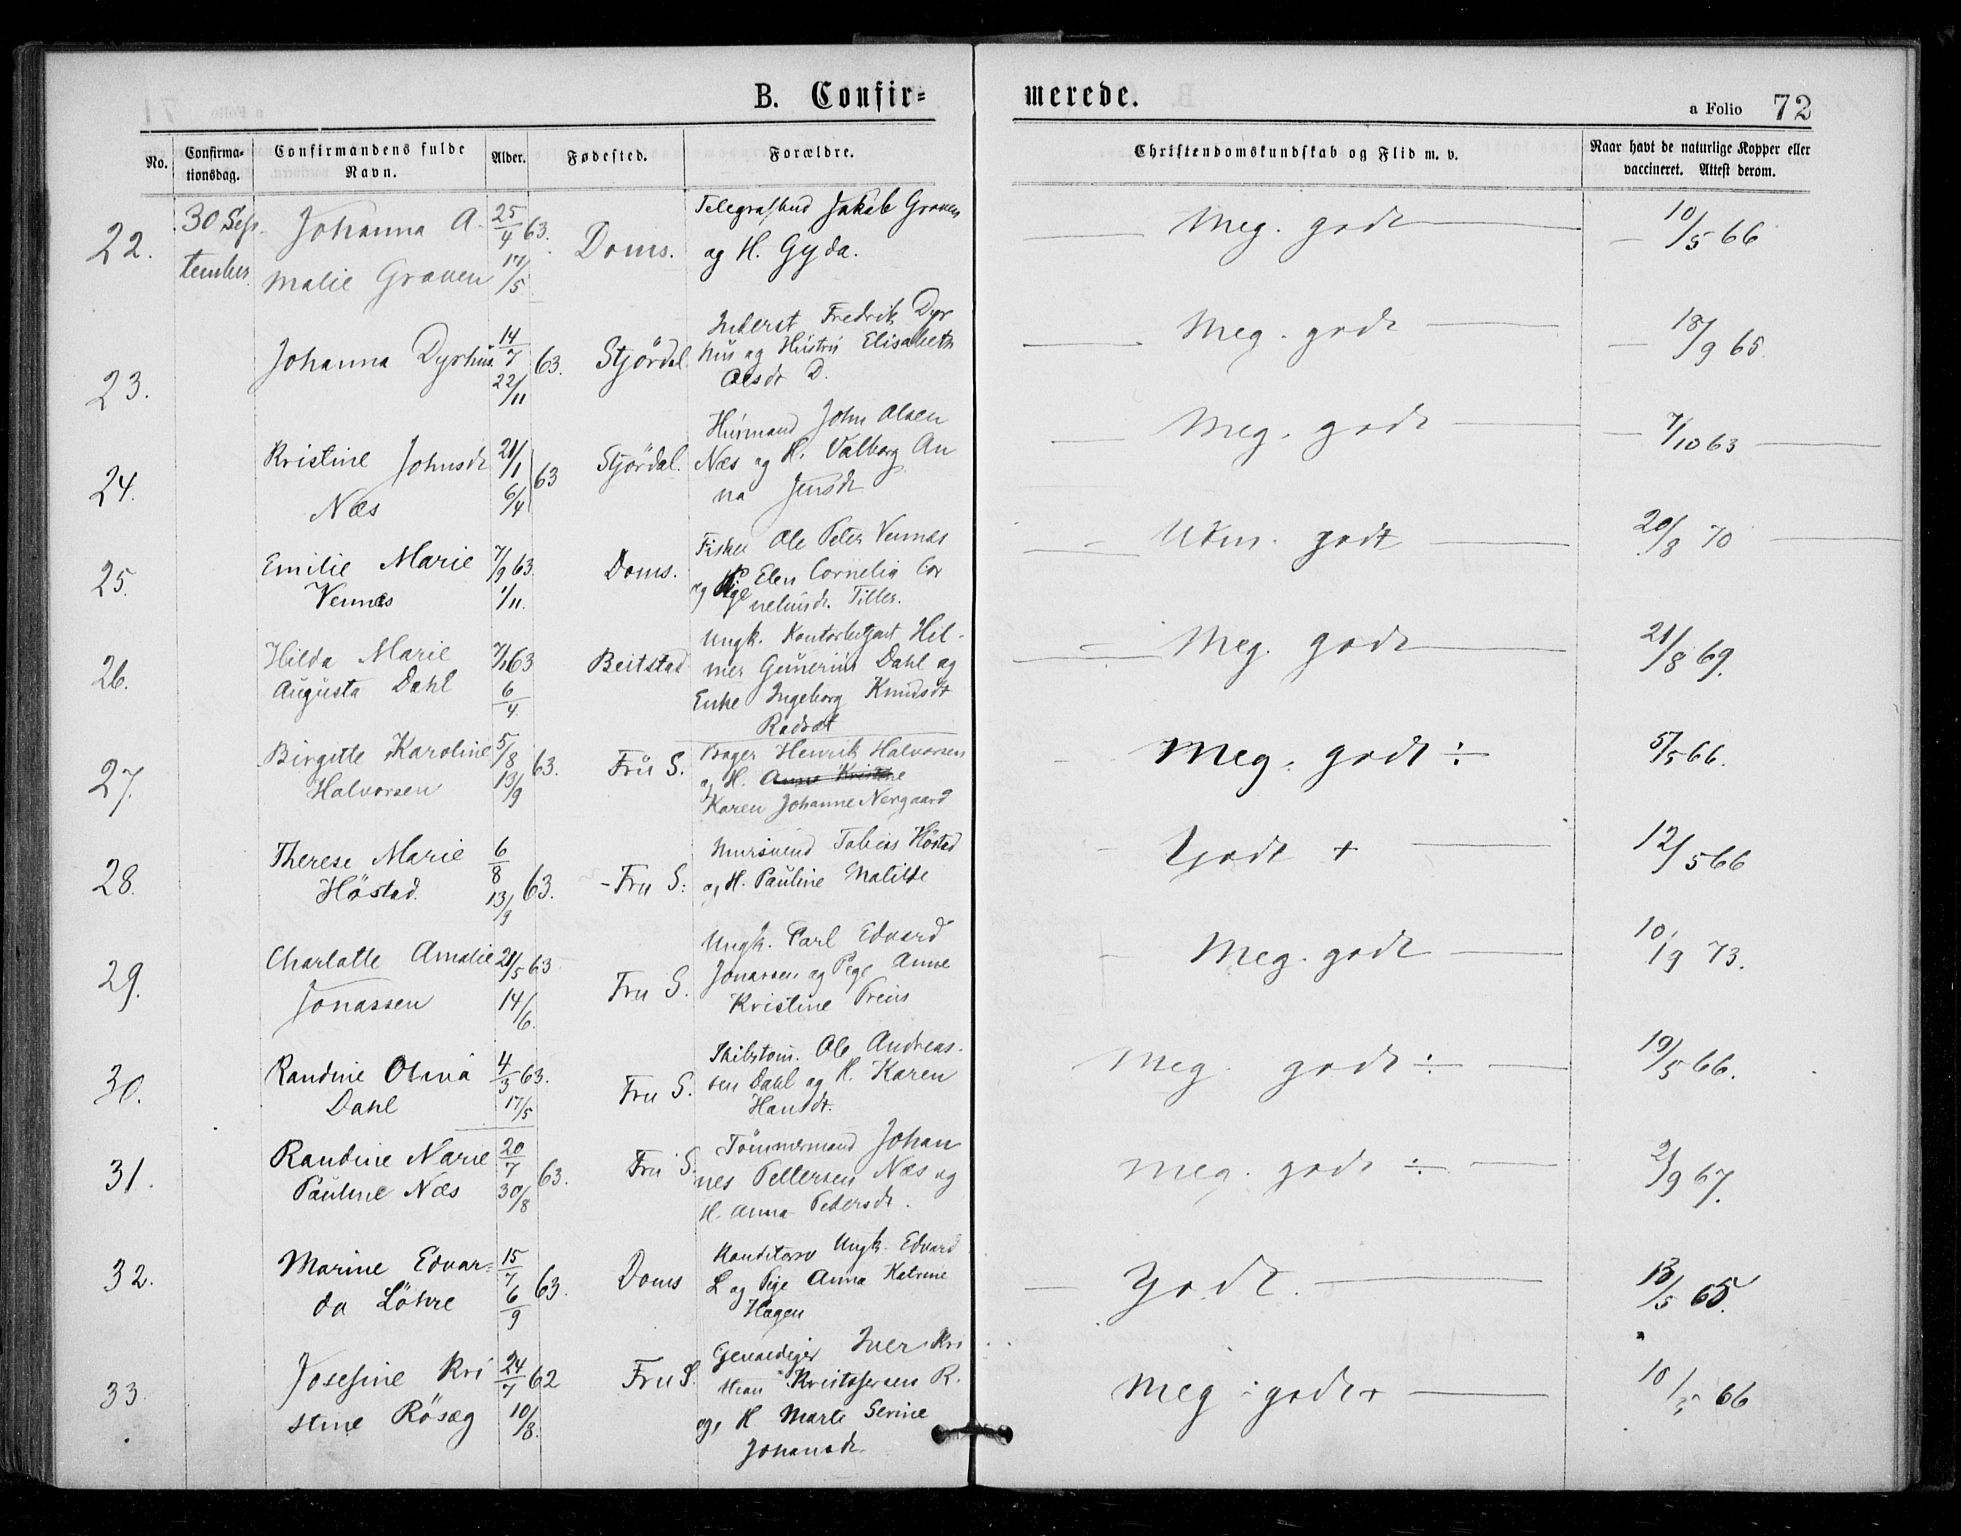 B. Confir=
merede.
a Folio 72
No. Confirma-tionsdag. Confirmandens fulde Navn. Alder. Fødested. Forældre. Christendomskundskab og Flid m. v. Naar havt de naturlige Kopper eller vaccineret. Attest derom.
22. 30 Sep- Johanna A- 25/4 63. Doms. Telegrafbud Jakob Graven Meg. godt 10/5 66
tember. malie Graven 17/5 og H. Gyda.
Inderst Fredrik Dyr
23. Johanna Dyrhus. 14/7 63. Stjördal hus og Hustru Elisabeth Meg. godt 18/9 65.
22/11 Olsdt D.
Husmand John Olsen
24. Kristine Johnsdt 21/1 63 Stjördal. Næs og H. Valborg An Meg. godt 7/10 63
Næs 6/4 na Jensdt
Fisker Ole Peter Vennes
25. Emilie Marie 7/9 63. Doms. og Pige Elen Cornelia Cor Udm. godt 20/8 70
Vennes 1/11. neliusdt. Tiller.
Ungk. Kontorbetjent Hil-
26. Hilda Marie 7/1 63 Beitstad mer Dahl og Meg. godt 21/8 69.
Augusta Dahl 6/4. Enke Ingeborg Knudsdt
27. Birgitte Karoline 5/8 63. Fru S. Bager Henrik Halvorsen Meg. godt ÷ 5/5 66.
Halvorsen 13/9 og H. Anne Kristine
Karen Johanne Nergaard
28. Therese Marie 6/8 63. Fru S. Mursvend Tobias Höstad Godt + 12/5 66
Höstad. 13/9 og H. Pauline Matilde
Ungk. Carl Edvard
29. Charlotte Amalie 21/5 63 Fru S. Jonassen og Pige Anne Meg. godt 10/9 73.
Jonassen 14/6. Kristine
Ole Andreas-
30. Randine Olava 4/3 63. Fru S. sen Dahl og H. Karen Meg. godt ÷ 19/5 66.
Dahl 17/5 Hansdt.
31. Randine Marie 20/7 63. Fru S. Tömmermand Johan Meg. godt ÷ 2/9 67.
Pauline Næs 30/8 nes Pettersen Næs og
H. Anna Pedersdt.
32. Marine Edvar= 15/7 63. Doms Konditorsv Ungk. Edvard Godt. 13/5 65.
da Löhre 6/9 L og Pige Anna Katrine
Hagen
33. Josefine Kri 24/7 62 Fru S. Gevaldiger Iver Kri Meg. godt + 10/5 66
stine Rösæg 10/8. stian Kristofersen R.
og H Marte Serine
Johansdt.